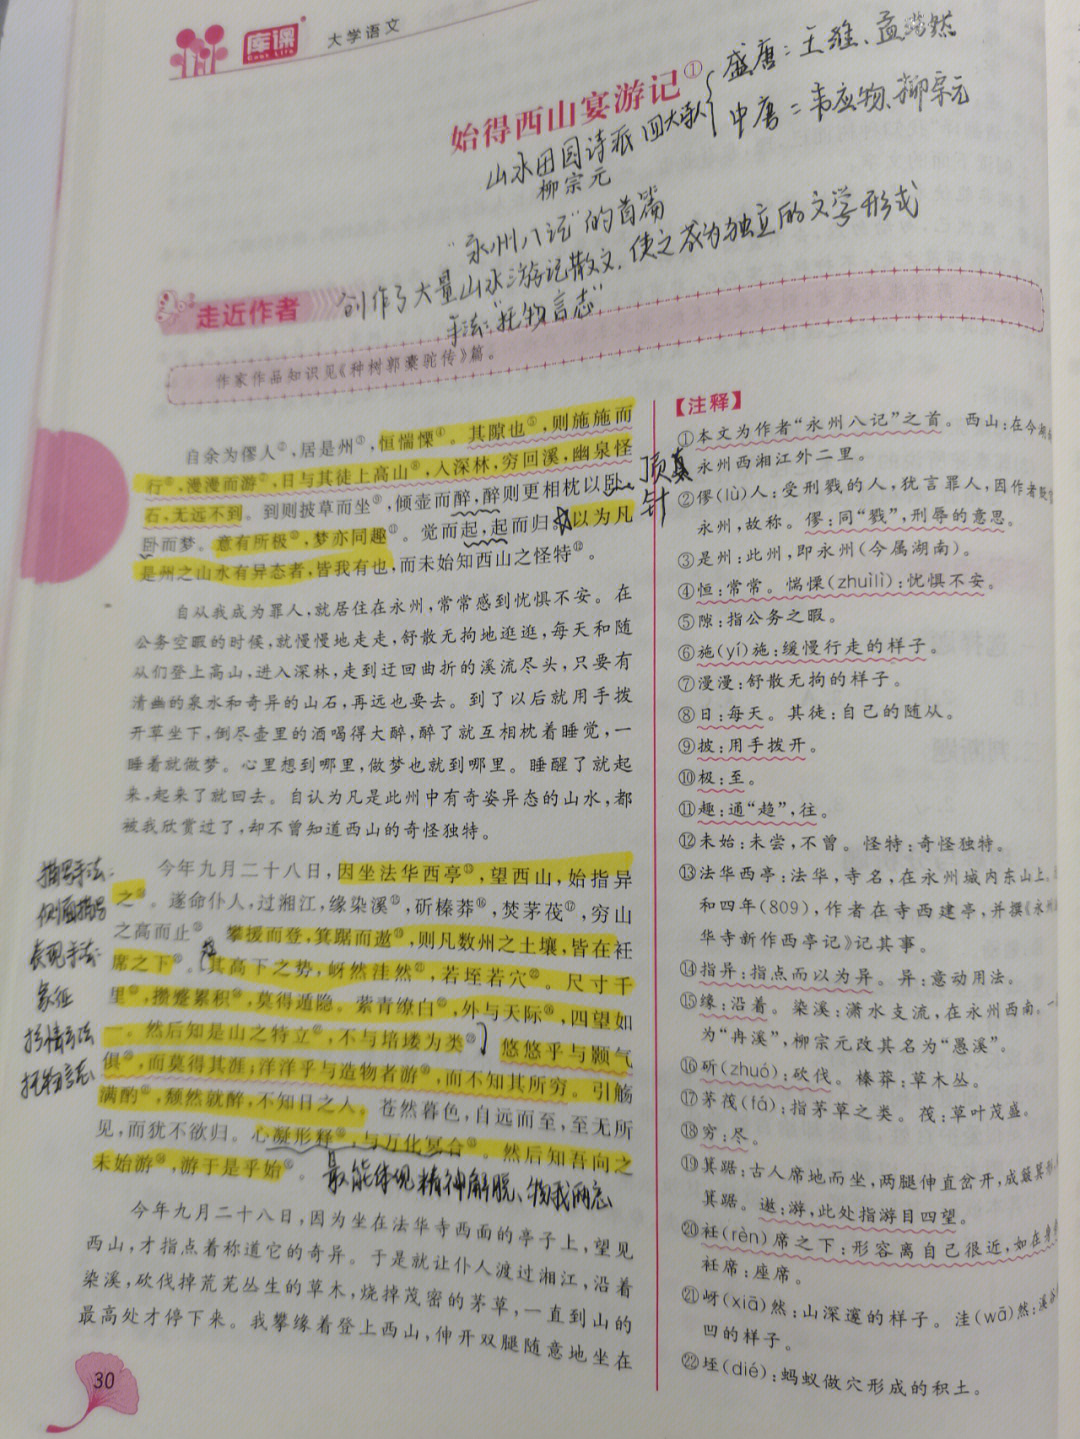 库课
大学语文
始得西山宴游记①
盛唐：王维、孟浩然
中唐：韦应物、柳宗元
山水田园诗派 四大诗人
柳宗元
“永州八记”的首篇
创作了大量山水游记散文，使之成为独立的文学形式
手法：“托物言志”
走近作者
作家作品知识见《种树郭橐驼传》篇。
自余为僇人②，居是州③，恒惴慄④。其隙也⑤，则施施而
行⑥，漫漫而游⑦，日与其徒上高山⑧，入深林，穷回溪，幽泉怪
石，无远不到。到则披草而坐⑨，倾壶而醉，醉则更相枕以卧，
卧而梦。意有所极⑩，梦亦同趣⑪。觉而起，起而归。以为凡
是州之山水有异态者，皆我有也，而未始知西山之怪特⑫。
顶真
针
自从我成为罪人，就居住在永州，常常感到忧惧不安。在
公务空暇的时候，就慢慢地走走，舒散无拘地逛逛，每天和随
从们登上高山，进入深林，走到迂回曲折的溪流尽头，只要有
清幽的泉水和奇异的山石，再远也要去。到了以后就用手拨
开草坐下，倒尽壶里的酒喝得大醉，醉了就互相枕着睡觉，一
睡着就做梦。心里想到哪里，做梦也就到哪里。睡醒了就起
来，起来了就回去。自认为凡是此州中有奇姿异态的山水，都
被我欣赏过了，却不曾知道西山的奇怪独特。
描写手法：
侧面描写
表现手法：
象征
抒情手法
托物言志
今年九月二十八日，因坐法华西亭⑬，望西山，始指异
之⑭。遂命仆人，过湘江，缘染溪⑮，斫榛莽⑯，焚茅茷⑰，穷山
之高而止⑱。攀援而登，箕踞而遨⑲，则凡数州之土壤，皆在衽
席之下⑳。其高下之势，岈然洼然㉑，若垤若穴㉒。尺寸千
里㉓，攒蹙累积㉔，莫得遁隐。萦青缭白㉕，外与天际㉖，四望如
一。然后知是山之特立㉗，不与培塿为类㉘。悠悠乎与颢气
俱㉙，而莫得其涯；洋洋乎与造物者游㉚，而不知其所穷。引觞
满酌㉛，颓然就醉，不知日之入。苍然暮色，自远而至，至无所
见，而犹不欲归。心凝形释㉜，与万化冥合㉝。然后知吾向之
未始游㉞，游于是乎始㉟。
最能体现精神解脱、物我两忘
今年九月二十八日，因为坐在法华寺西面的亭子上，望见
西山，才指点着称道它的奇异。于是就让仆人渡过湘江，沿着
染溪，砍伐掉荒芜丛生的草木，烧掉茂密的茅草，一直到山的
最高处才停下来。我攀缘着登上西山，伸开双腿随意地坐在
30
【注释】
①本文为作者“永州八记”之首。西山：在今湖
永州西湘江外二里。
②僇(lù)人：受刑戮的人，犹言罪人，因作者贬
永州，故称。僇：同“戮”，刑辱的意思。
③是州：此州，即永州(今属湖南)。
④恒：常常。惴慄(zhuìlì)：忧惧不安。
⑤隙：指公务之暇。
⑥施(yí)施：缓慢行走的样子。
⑦漫漫：舒散无拘的样子。
⑧日：每天。其徒：自己的随从。
⑨披：用手拨开。
⑩极：至。
⑪趣：通“趋”，往。
⑫未始：未尝，不曾。怪特：奇怪独特。
⑬法华西亭：法华，寺名，在永州城内东山上。
和四年(809)，作者在寺西建亭，并撰《永州
华寺新作西亭记》记其事。
⑭指异：指点而以为异。异：意动用法。
⑮缘：沿着。染溪：潇水支流，在永州西南。一
为“冉溪”，柳宗元改其名为“愚溪”。
⑯斫(zhuó)：砍伐。榛莽：草木丛。
⑰茅茷(fá)：指茅草之类。茷：草叶茂盛。
⑱穷：尽。
⑲箕踞：古人席地而坐，两腿伸直岔开，成簸箕
箕踞。遨：游，此处指游目四望。
⑳衽(rèn)席之下：形容离自己很近，如在
衽席：座席。
㉑岈(xiā)然：山深邃的样子。洼(wā)然：溪谷
凹的样子。
㉒垤(dié)：蚂蚁做穴形成的积土。